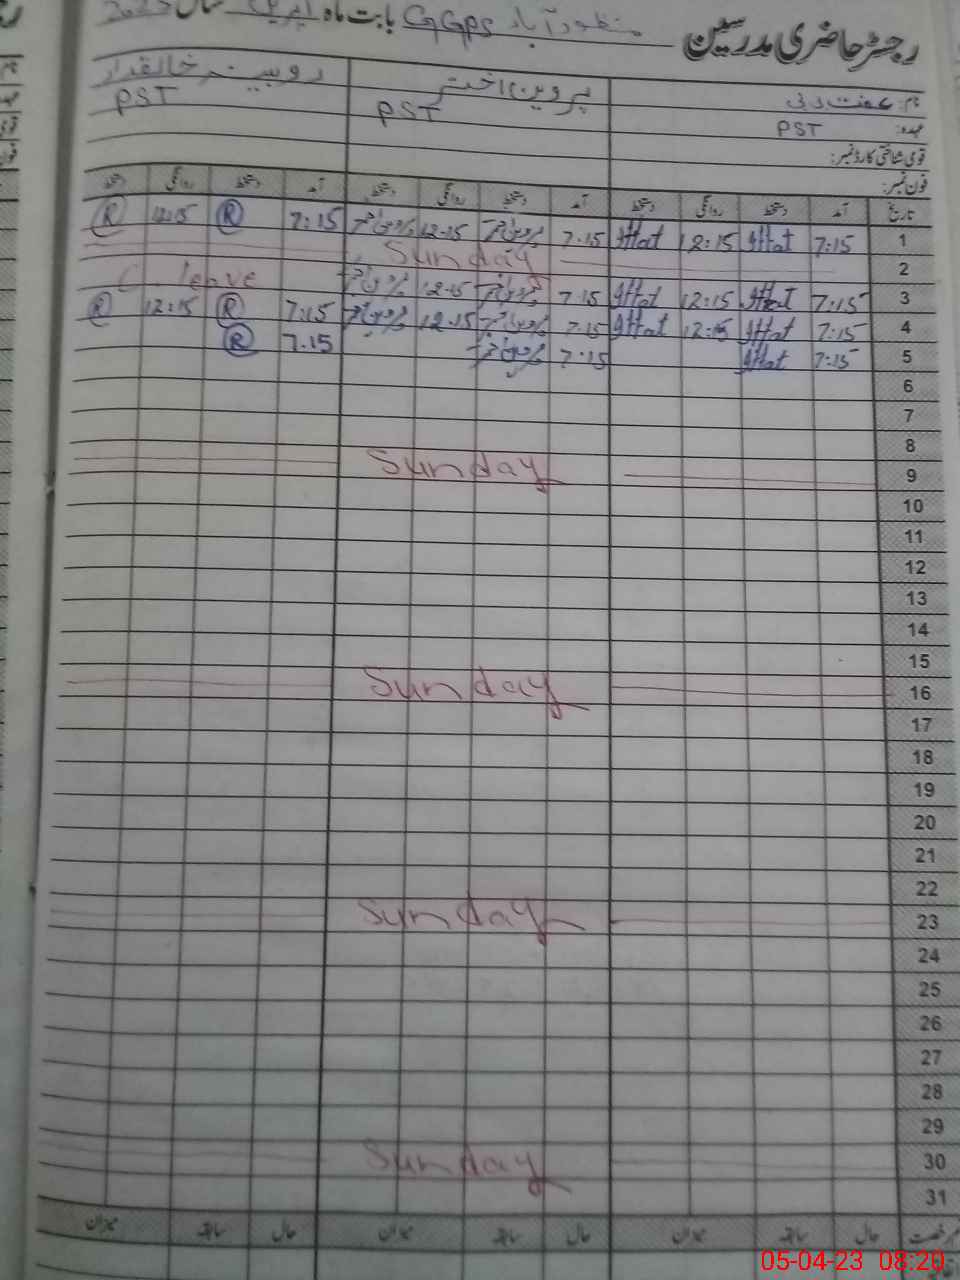 رجسٹر حاضری مدرسین GGPS منظور آباد بابت ماہ اپریل سال 2023
نام: عفت بی بی پروین اختر روبینہ
عہدہ: PST PST PST
قومی شناختی کارڈ نمبر:
فون نمبر:
تاریخ آمد دستخط روانگی دستخط آمد دستخط روانگی دستخط آمد دستخط روانگی دستخط
1 7:15 Iffat 12:15 Iffat 7.15 پروین اختر 12.15 پروین اختر 7:15 R 12:15 R
2 Sunday
3 7:15 Iffat 12:15 Iffat 7.15 پروین اختر 12.15 پروین اختر C. leave
4 7:15 Iffat 12:15 Iffat 7.15 پروین اختر 12.15 پروین اختر 7:15 R 12:15 R
5 7:15 Iffat 7:15 پروین اختر 7.15 R
6
7
8
9 Sunday
10
11
12
13
14
15
16 Sunday
17
18
19
20
21
22
23 Sunday
24
25
26
27
28
29
30 Sunday
31
رخصت حال سابقہ میزان حال سابقہ میزان حال سابقہ میزان
05-04-23 08:20